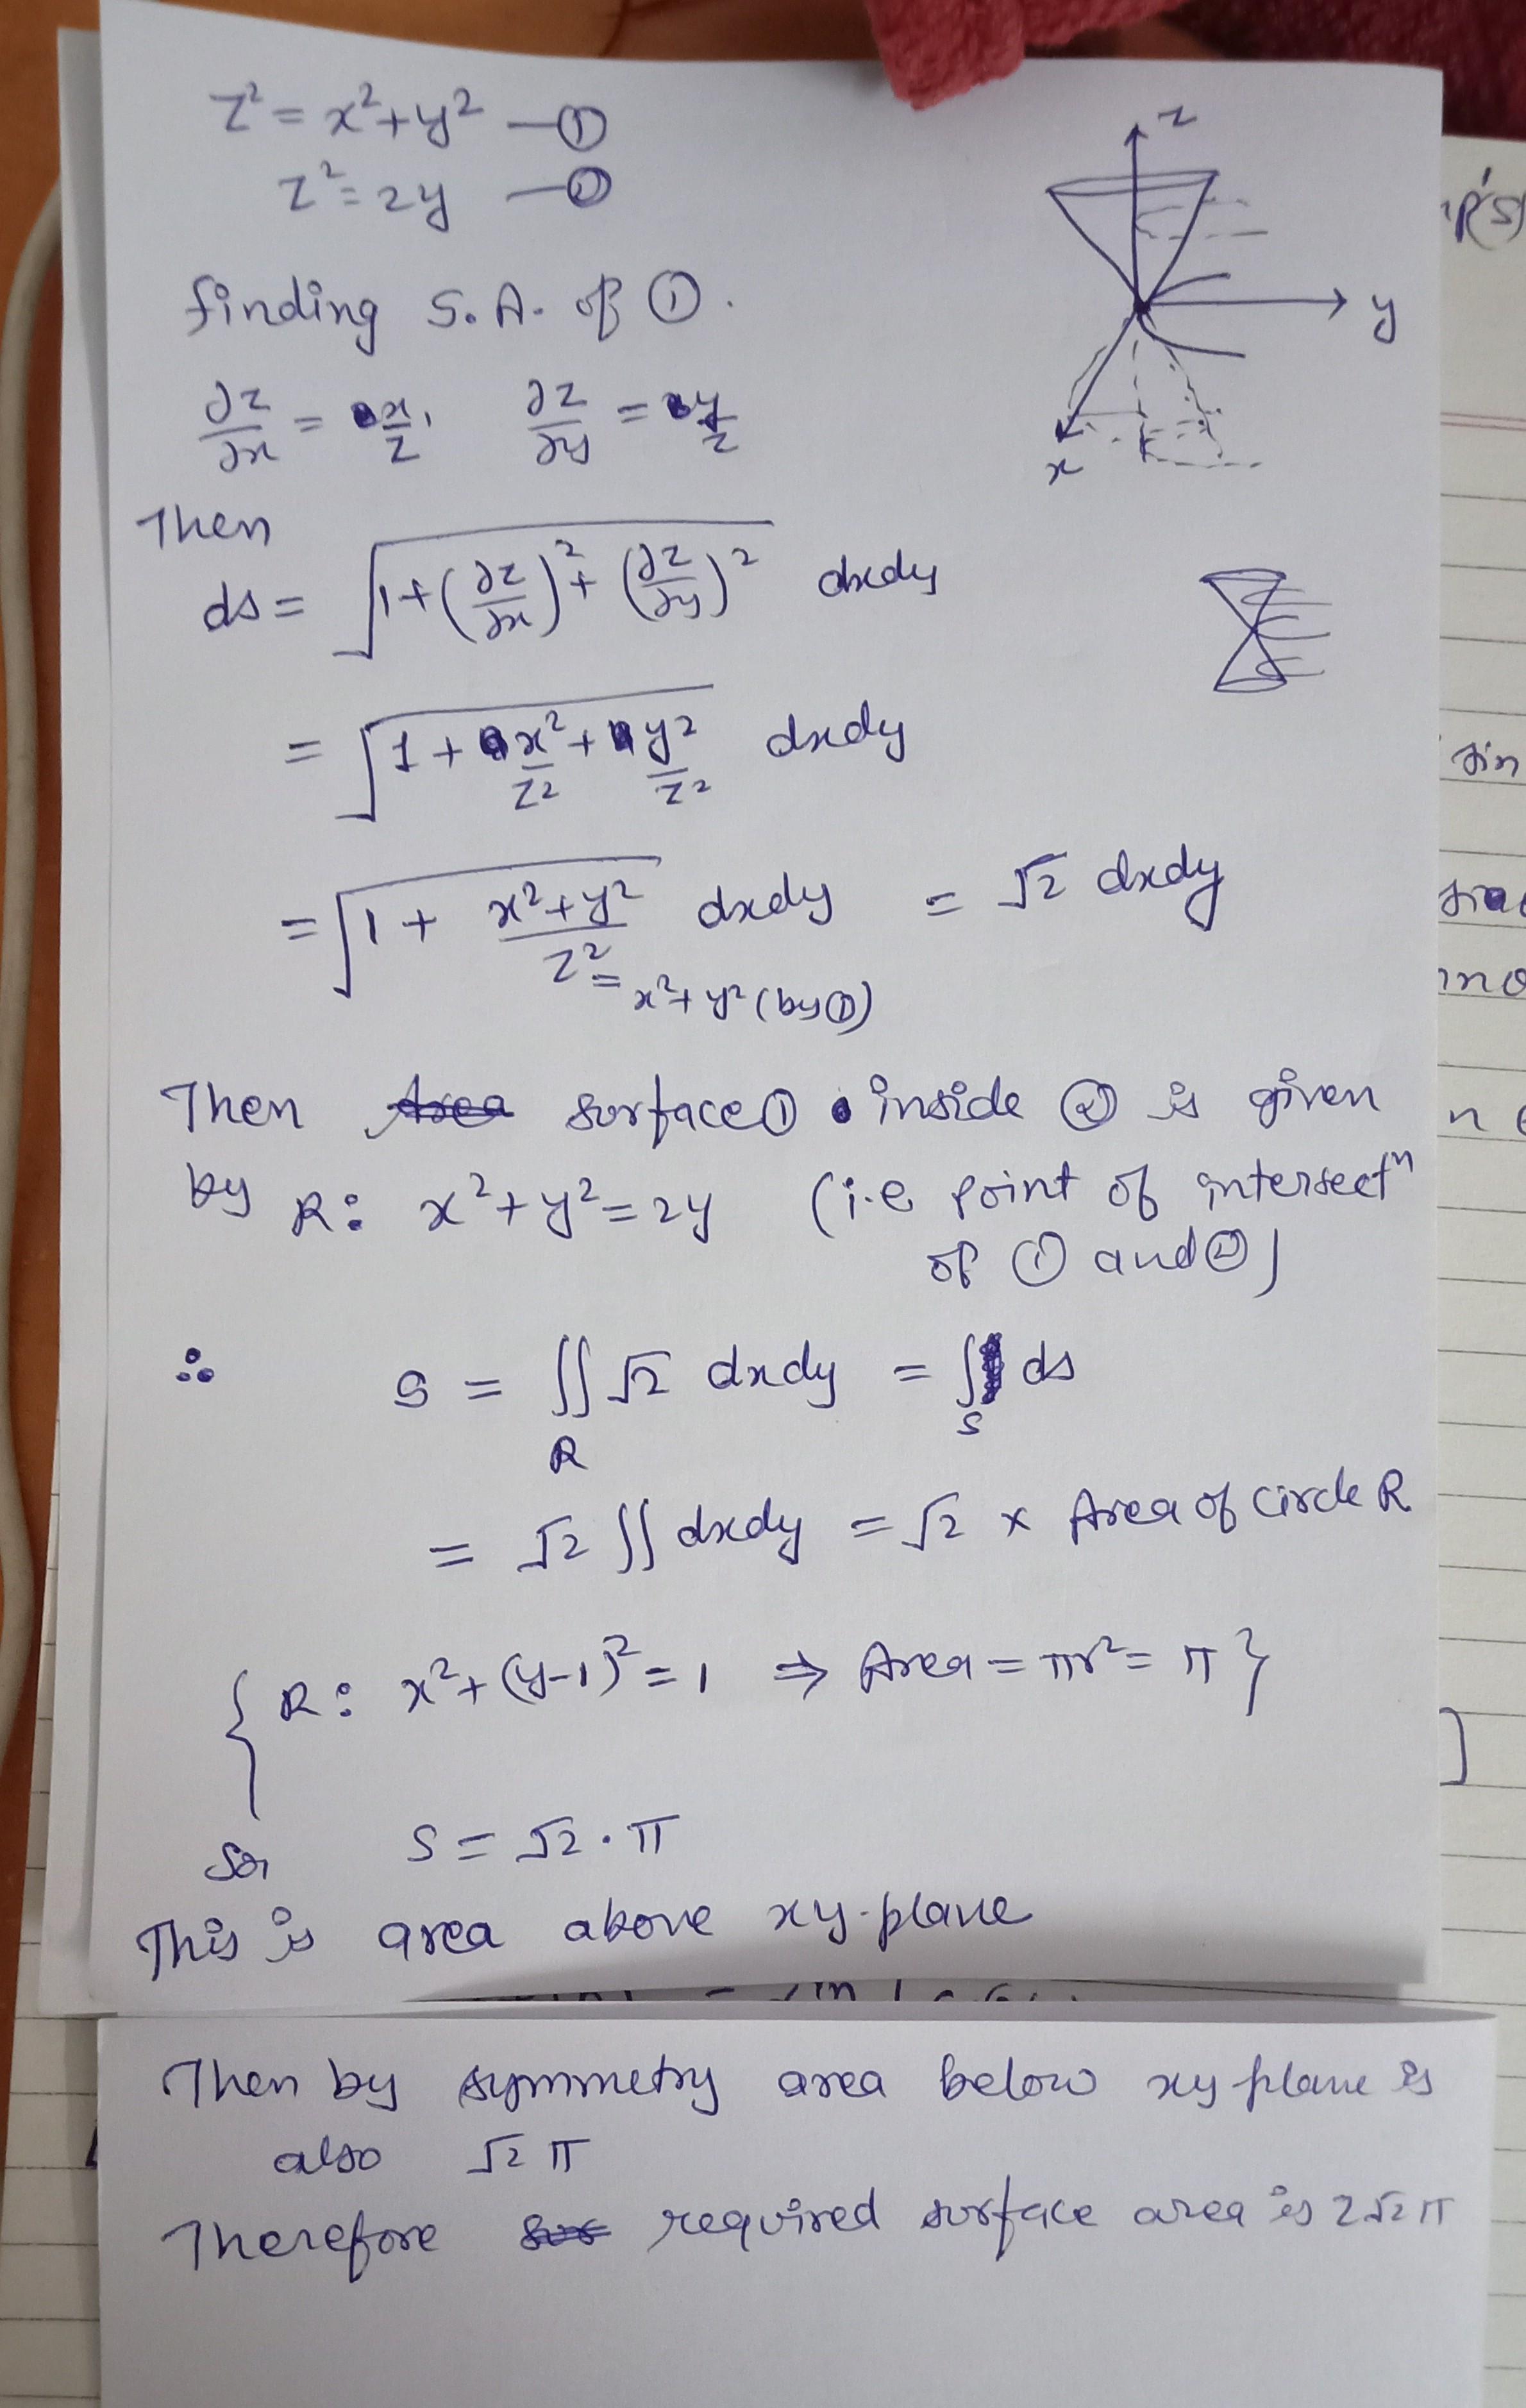 z² = x²+y² —①
z² = 2y —②
finding S.A. of ①.
∂z/∂x = x/z, ∂z/∂y = y/z
Then
ds = √(1+(∂z/∂x)²+(∂z/∂y)²) dxdy
= √(1+x²/z²+y²/z²) dxdy
= √(1+(x²+y²)/z²) dxdy = √2 dxdy
= x²+y² (by①)
Then surface① inside ② is given
by R: x²+y²=2y (i.e point of intersectⁿ
of ① and②)
∴ S = ∬_R √2 dxdy = ∫_S ds
= √2 ∬ dxdy = √2 × Area of Circle R
{R: x²+(y-1)²=1 ⇒ Area = πr² = π}
So, S = √2 · π
This is area above xy-plane
Then by symmetry area below xy plane is
also √2 π
Therefore required surface area is 2√2 π
z
y
x
sin
]